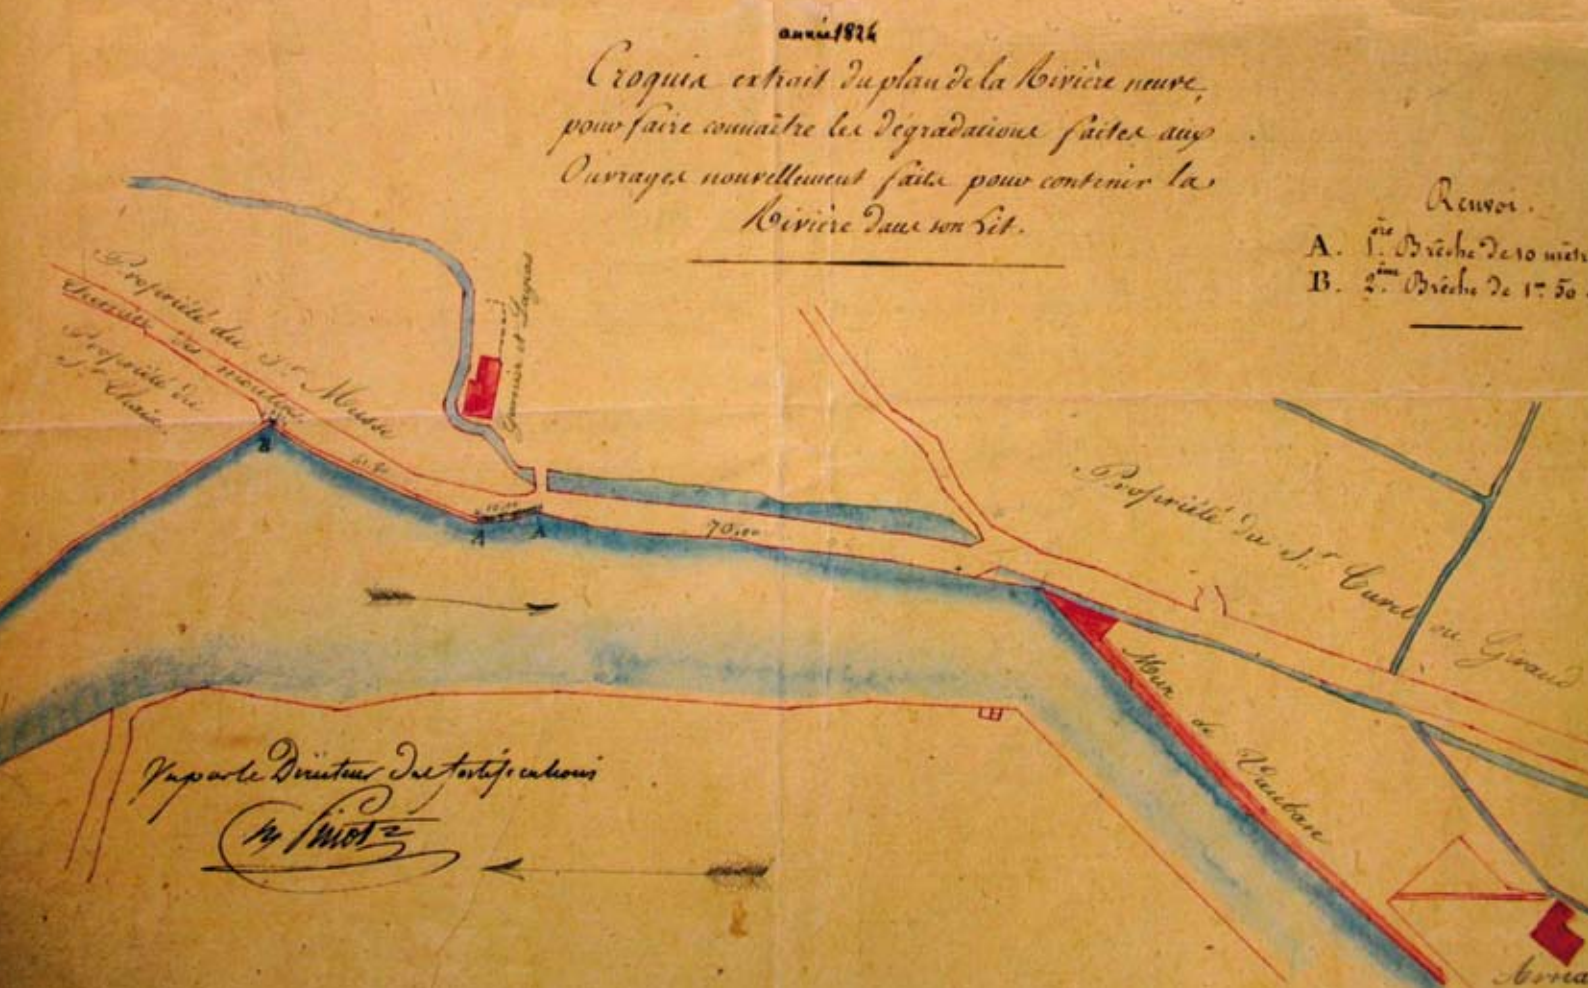 année 1824
Croquis extrait du plan de la Rivière neuve,
pour faire connaître les dégradations faites aux
Ouvrages nouvellement faits pour contenir la
Rivière dans son Lit.
Renvoi.
A. 1.ère Brêche de 10 mètr
B. 2.ème Brêche de 1m 50
Propriété du Sr Musse
des moulins
Propriété du
Sr Chaix.
et Layas
B
10,00
A A
70,00
Propriété du Sr Curel ou Giraud
Mur de Vauban
Vu par le Directeur des fortifications